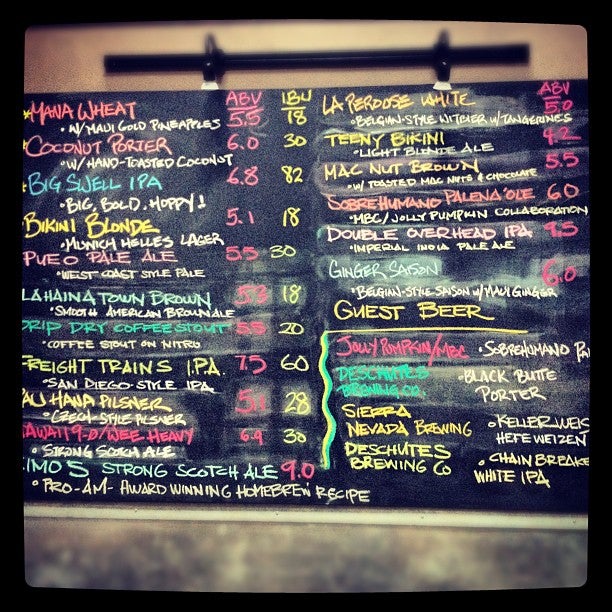 ABV IBU
MANA WHEAT 5.5 18
• W/ MAUI GOLD PINEAPPLES
COCONUT PORTER 6.0 30
• W/ HAND-TOASTED COCONUT
BIG SWELL IPA 6.8 82
• BIG, BOLD, HOPPY!
BIKINI BLONDE 5.1 18
• MUNICH HELLES LAGER
PUEO PALE ALE 5.5 30
• WEST COAST STYLE PALE
LAHAINA TOWN BROWN 5.3 18
• SMOOTH AMERICAN BROWN ALE
DRIP DRY COFFEE STOUT 5.5 20
• COFFEE STOUT ON NITRO
FREIGHT TRAINS I.P.A. 7.5 60
SAN DIEGO-STYLE IPA
PAU HANA PILSNER 5.1 28
• CZECH-STYLE PILSNER
HAWAII 9-0/WEE HEAVY 6.9 30
• STRONG SCOTCH ALE
STRONG SCOTCH ALE 9.0
• PRO-AM-AWARD WINNING HOMEBREW RECIPE
ABV
LA PEROUSE WHITE 5.0
• BELGIAN-STYLE WITBIER W/TANGERINES
TEENY BIKINI 4.2
• LIGHT BLONDE ALE
MAC NUT BROWN 5.5
• W/ TOASTED MAC NUTS & CHOCOLATE
SOBREHUMANO PALENA 'OLE 6.0
• MBC/JOLLY PUMPKIN COLLABORATION
DOUBLE OVERHEAD IPA
• IMPERIAL INDIA PALE ALE
GINGER SAISON 6.0
• BELGIAN-STYLE SAISON W/MAUI GINGER
GUEST BEER
JOLLY PUMPKIN/MBC • SOBREHUMANO
DESCHUTES BREWING CO. • BLACK BUTTE
PORTER
SIERRA
NEVADA BREWING • KELLERWEIS
HEFEWEIZEN
DESCHUTES
BREWING CO • CHAINBREAKE
WHITE IPA